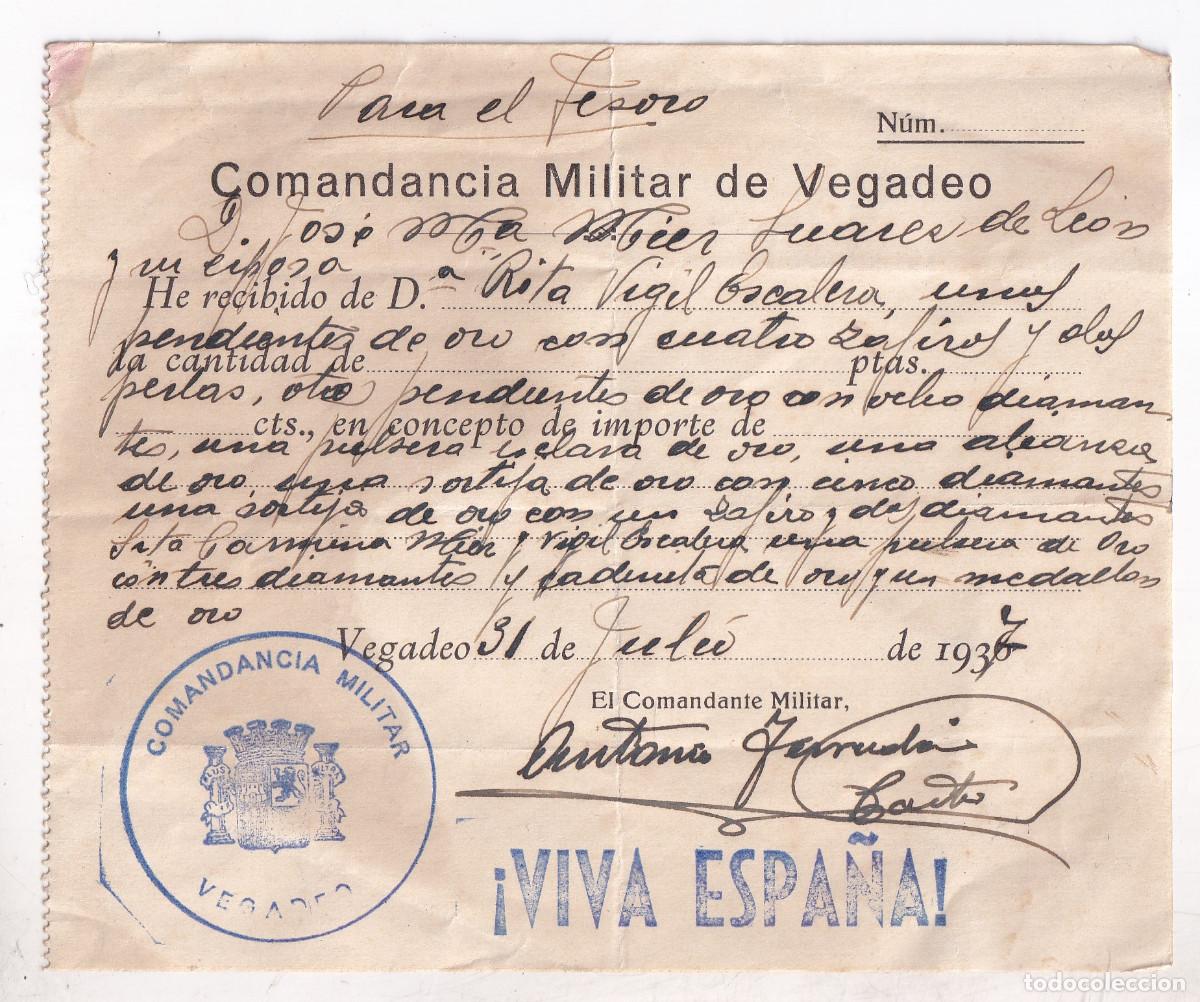 Para el Tesoro
Núm.
Comandancia Militar de Vegadeo
D. José Mª Mier Suarez de León
y su esposa
He recibido de D.ª Rita Vigil Escalera, unos
pendientes de oro con cuatro zafiros y dos
la cantidad de ptas.
perlas, otros pendientes de oro con ocho diaman-
cts., en concepto de importe de
tes, una pulsera esclava de oro, una alianza
de oro, una sortija de oro con cinco diamantes
una sortija de oro con un zafiro y dos diamantes
Srta Carmina Mier y Vigil Escalera una pulsera de Oro
con tres diamantes y cadeneta de oro y un medallon
de oro
Vegadeo 31 de Julio de 1937
El Comandante Militar,
Antonio
COMANDANCIA MILITAR
PLUS ULTRA
VEGADEO
¡VIVA ESPAÑA!
todocoleccion